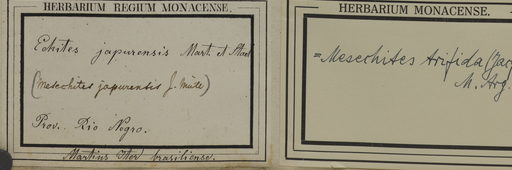 HERBARIUM REGIUM MONACENSE.
Echites japurensis Mart. et
(Mesechites japurensis J. Müll)
Prov. Rio Negro.
Martius Iter brasiliense.
HERBARIUM MONACENSE.
= Mesechites trifida (Jac
M. Arg.